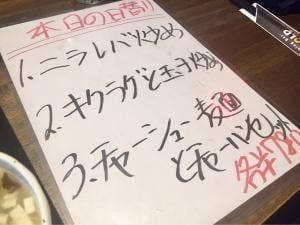 本日の日替り
1.ニラレバ炒め
2.キクラゲと玉子炒め
3.チャーシュー麺
とチャーハンセット
各¥780